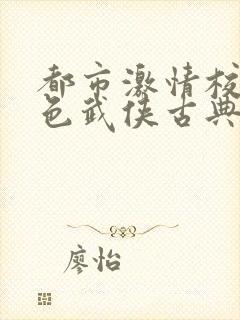 都市激情校
色武侠古典
廖怡